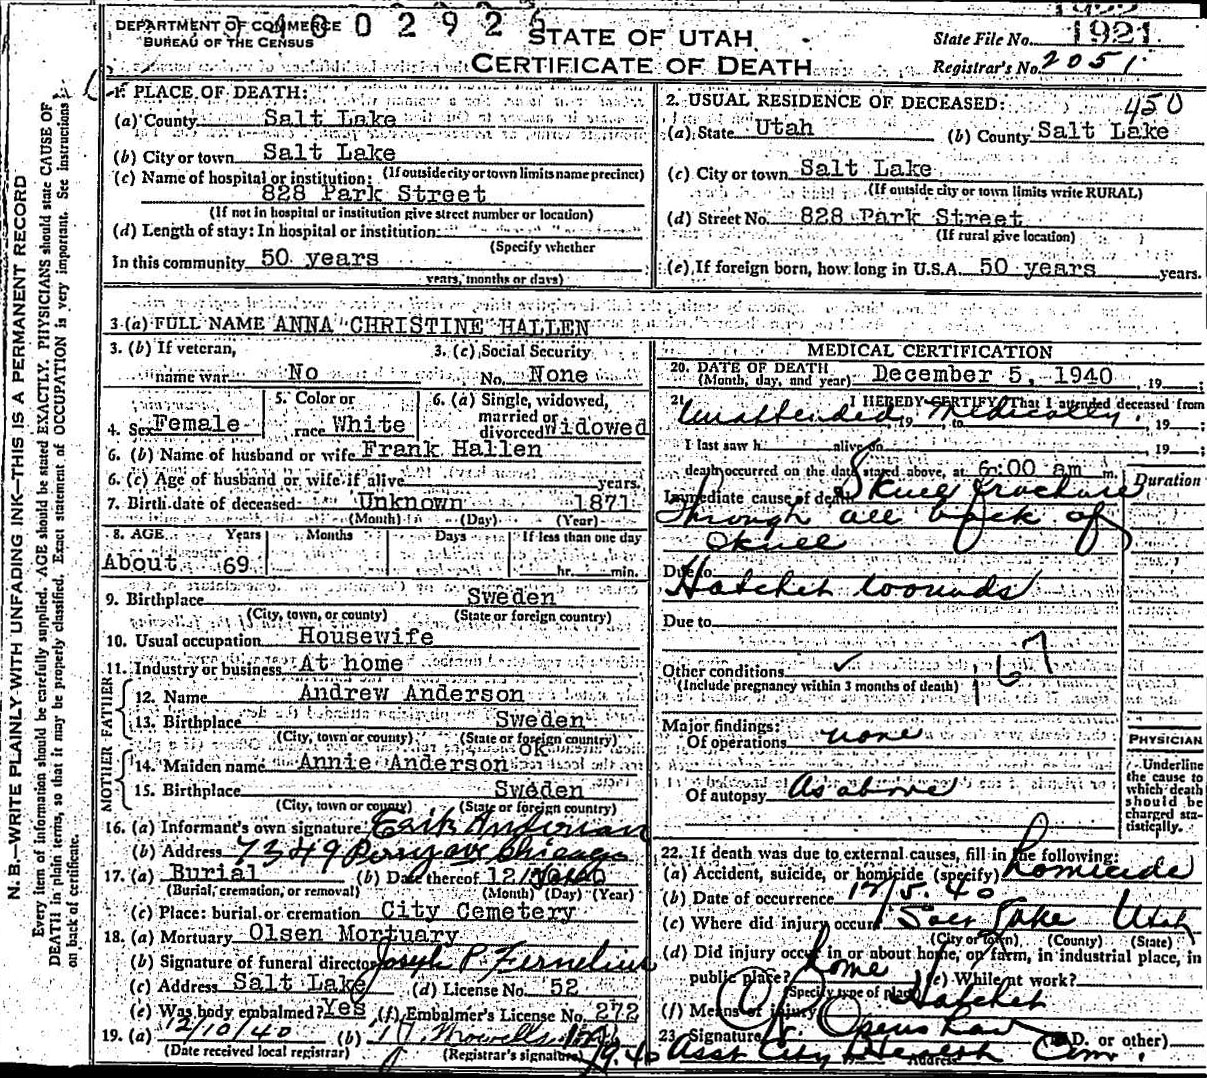 DEPARTMENT OF COMMERCE
BUREAU OF THE CENSUS
4 0 0 2 9 2 6
STATE OF UTAH
CERTIFICATE OF DEATH
State File No. 1921
Registrar's No. 2051
N. B.—WRITE PLAINLY WITH UNFADING INK—THIS IS A PERMANENT RECORD
Every item of information should be carefully supplied. AGE should be stated EXACTLY. PHYSICIANS should state CAUSE OF
DEATH in plain terms, so that it may be properly classified. Exact statement of OCCUPATION is very important. See instructions
on back of certificate.
1. PLACE OF DEATH:
(a) County Salt Lake
(b) City or town Salt Lake
(If outside city or town limits name precinct)
(c) Name of hospital or institution:
828 Park Street
(If not in hospital or institution give street number or location)
(d) Length of stay: In hospital or institution
(Specify whether
In this community 50 years
years, months or days)
2. USUAL RESIDENCE OF DECEASED: 450
(a) State Utah (b) County Salt Lake
(c) City or town Salt Lake
(If outside city or town limits write RURAL)
(d) Street No. 828 Park Street
(If rural give location)
(e) If foreign born, how long in U.S.A. 50 years years.
3 (a) FULL NAME ANNA CHRISTINE HALLEN
3. (b) If veteran, 3. (c) Social Security
name war No No. None
4. Sex Female
5. Color or
race White
6. (a) Single, widowed,
married or
divorced Widowed
6. (b) Name of husband or wife Frank Hallen
6. (c) Age of husband or wife if alive years.
7. Birth date of deceased Unknown 1871
(Month) (Day) (Year)
8. AGE Years Months Days If less than one day
About 69 hr. min.
9. Birthplace Sweden
(City, town, or county) (State or foreign country)
10. Usual occupation Housewife
11. Industry or business At home
FATHER
12. Name Andrew Anderson
13. Birthplace Sweden
(City, town or county) (State or foreign country)
MOTHER
ok
14. Maiden name Annie Anderson
15. Birthplace Sweden
(City, town or county) (State or foreign country)
16. (a) Informant's own signature Erik Anderson
(b) Address 7349 Perry ave Chicago
17. (a) Burial (b) Date thereof
(Burial, cremation, or removal) (Month) (Day) (Year)
(c) Place: burial or cremation City Cemetery
18. (a) Mortuary Olsen Mortuary
(b) Signature of funeral director Joseph P. Fernelius
(c) Address Salt Lake (d) License No. 52
(e) Was body embalmed? Yes (f) Embalmer's License No. 272
19. (a) 12/10/40 (b)
(Date received local registrar) (Registrar's signature)
MEDICAL CERTIFICATION
20. DATE OF DEATH
(Month, day, and year) December 5, 1940, 19 ;
21. I HEREBY CERTIFY, That I attended deceased from
Unattended Medically
, 19 , to , 19 ;
I last saw h alive on , 19 ;
death occurred on the date stated above, at 6:00 am m.
Duration
Immediate cause of death Skull fracture
Through all back of
Skull
Due to
Hatchet wounds
Due to
Other conditions ✓ 167
(Include pregnancy within 3 months of death)
Major findings:
Of operations none
Of autopsy As above
PHYSICIAN
Underline
the cause to
which death
should be
charged sta-
tistically.
22. If death was due to external causes, fill in the following:
(a) Accident, suicide, or homicide (specify) Homicide
(b) Date of occurrence 12/5. 40
(c) Where did injury occur Salt Lake Utah
(City or town) (County) (State)
(d) Did injury occur in or about home, on farm, in industrial place, in
public place? home (e) While at work?
(Specify type of place)
(f) Means of injury Hatchet
23. Signature Openshaw (M.D. or other)
Asst City Health Com.
Address